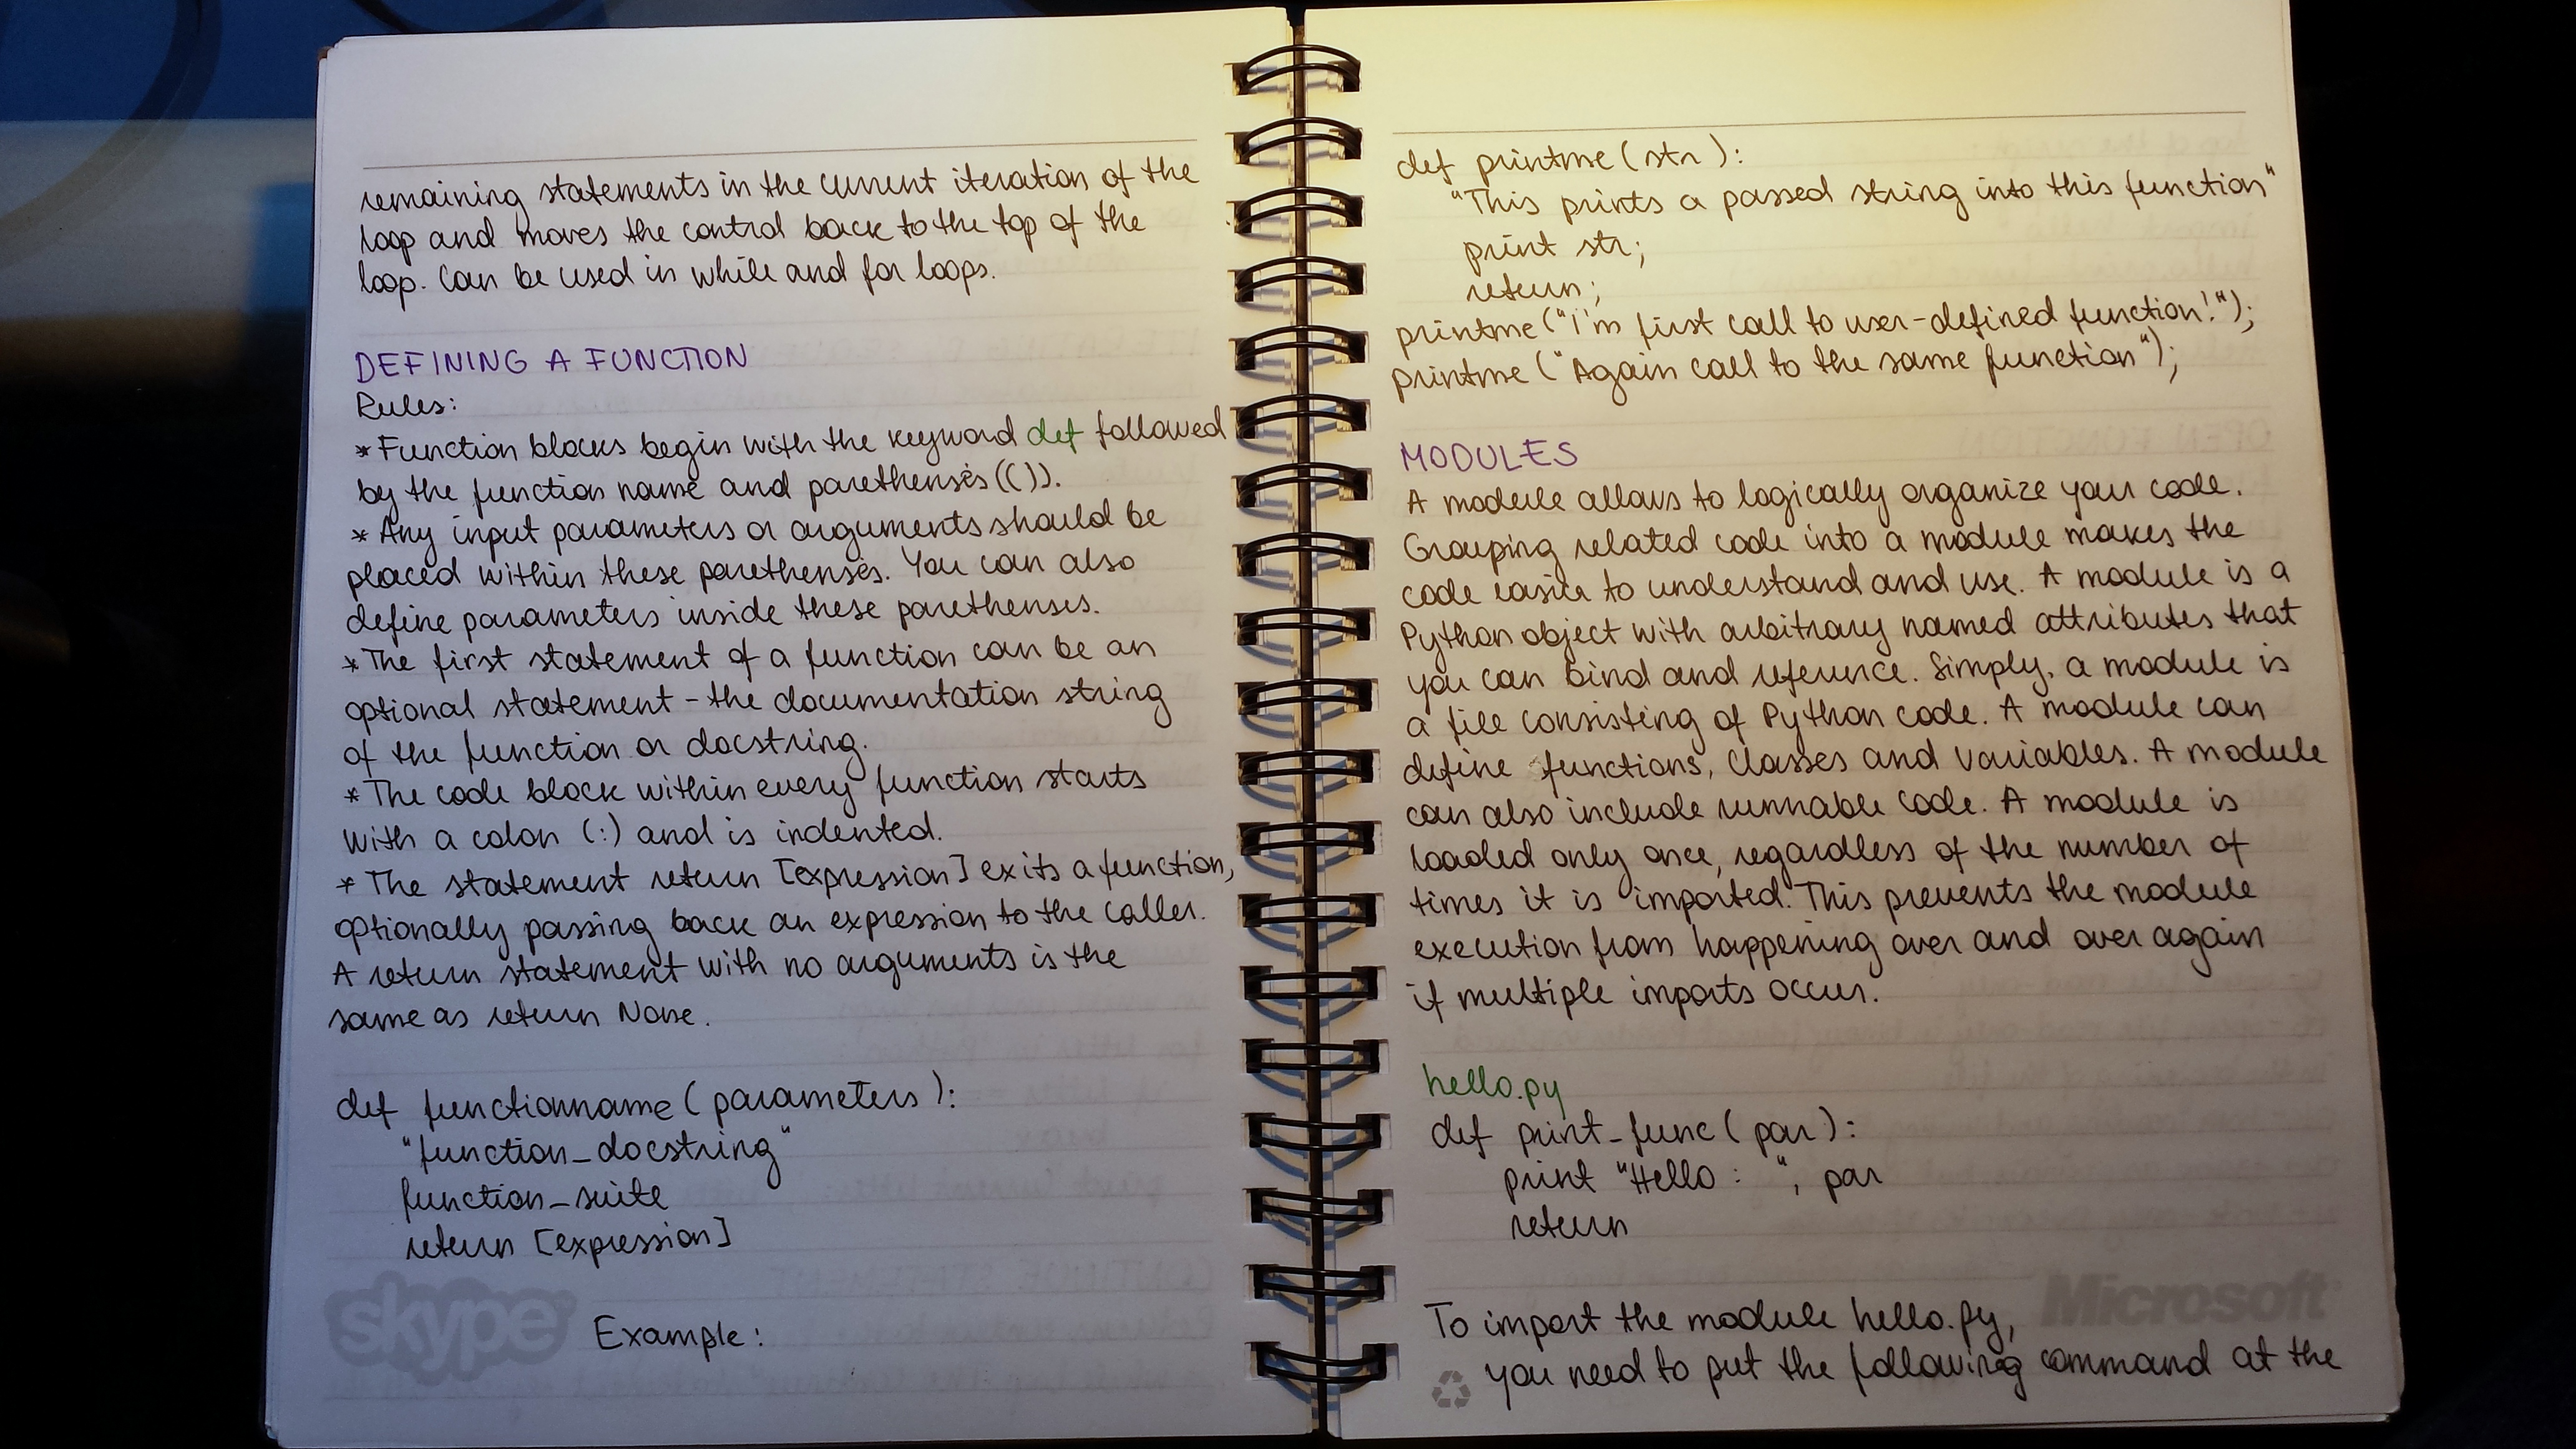 remaining statements in the current iteration of the
loop and moves the control back to the top of the
loop. Can be used in while and for loops.
DEFINING A FUNCTION
Rules:
* Function blocks begin with the keyword def followed
by the function name and parethenses (()).
* Any input parameters or arguments should be
placed within these parethenses. You can also
define parameters inside these parethenses.
* The first statement of a function can be an
optional statement - the documentation string
of the function or docstring.
* The code block within every function starts
with a colon (:) and is indented.
* The statement return [expression] exits a function,
optionally passing back an expression to the caller.
A return statement with no arguments is the
same as return None.
def functionname ( parameters ):
"function_docstring"
function_suite
return [expression]
skype
Example:
def printme ( str ):
"This prints a passed string into this function"
print str;
return;
printme ("I'm first call to user-defined function!");
printme ("Again call to the same function");
MODULES
A module allows to logically organize your code.
Grouping related code into a module makes the
code easier to understand and use. A module is a
Python object with arbitrary named attributes that
you can bind and reference. Simply, a module is
a file consisting of Python code. A module can
define functions, classes and variables. A module
can also include runnable code. A module is
loaded only once, regardless of the number of
times it is imported. This prevents the module
execution from happening over and over again
if multiple imports occur.
hello.py
def print_func ( par ):
print "Hello : ", par
return
Microsoft
To import the module hello.py,
you need to put the following command at the